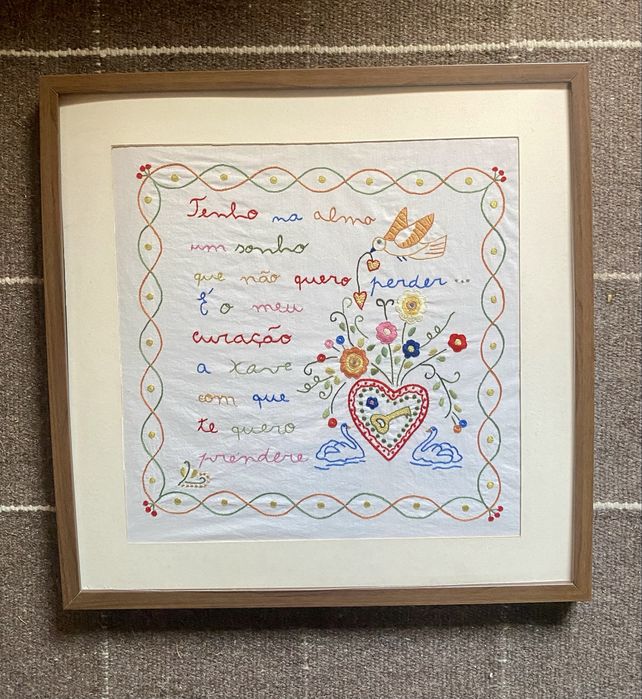 Tenho na alma
um sonho
que não quero perder...
É o meu
curação
a xave
com que
te quero
prendere